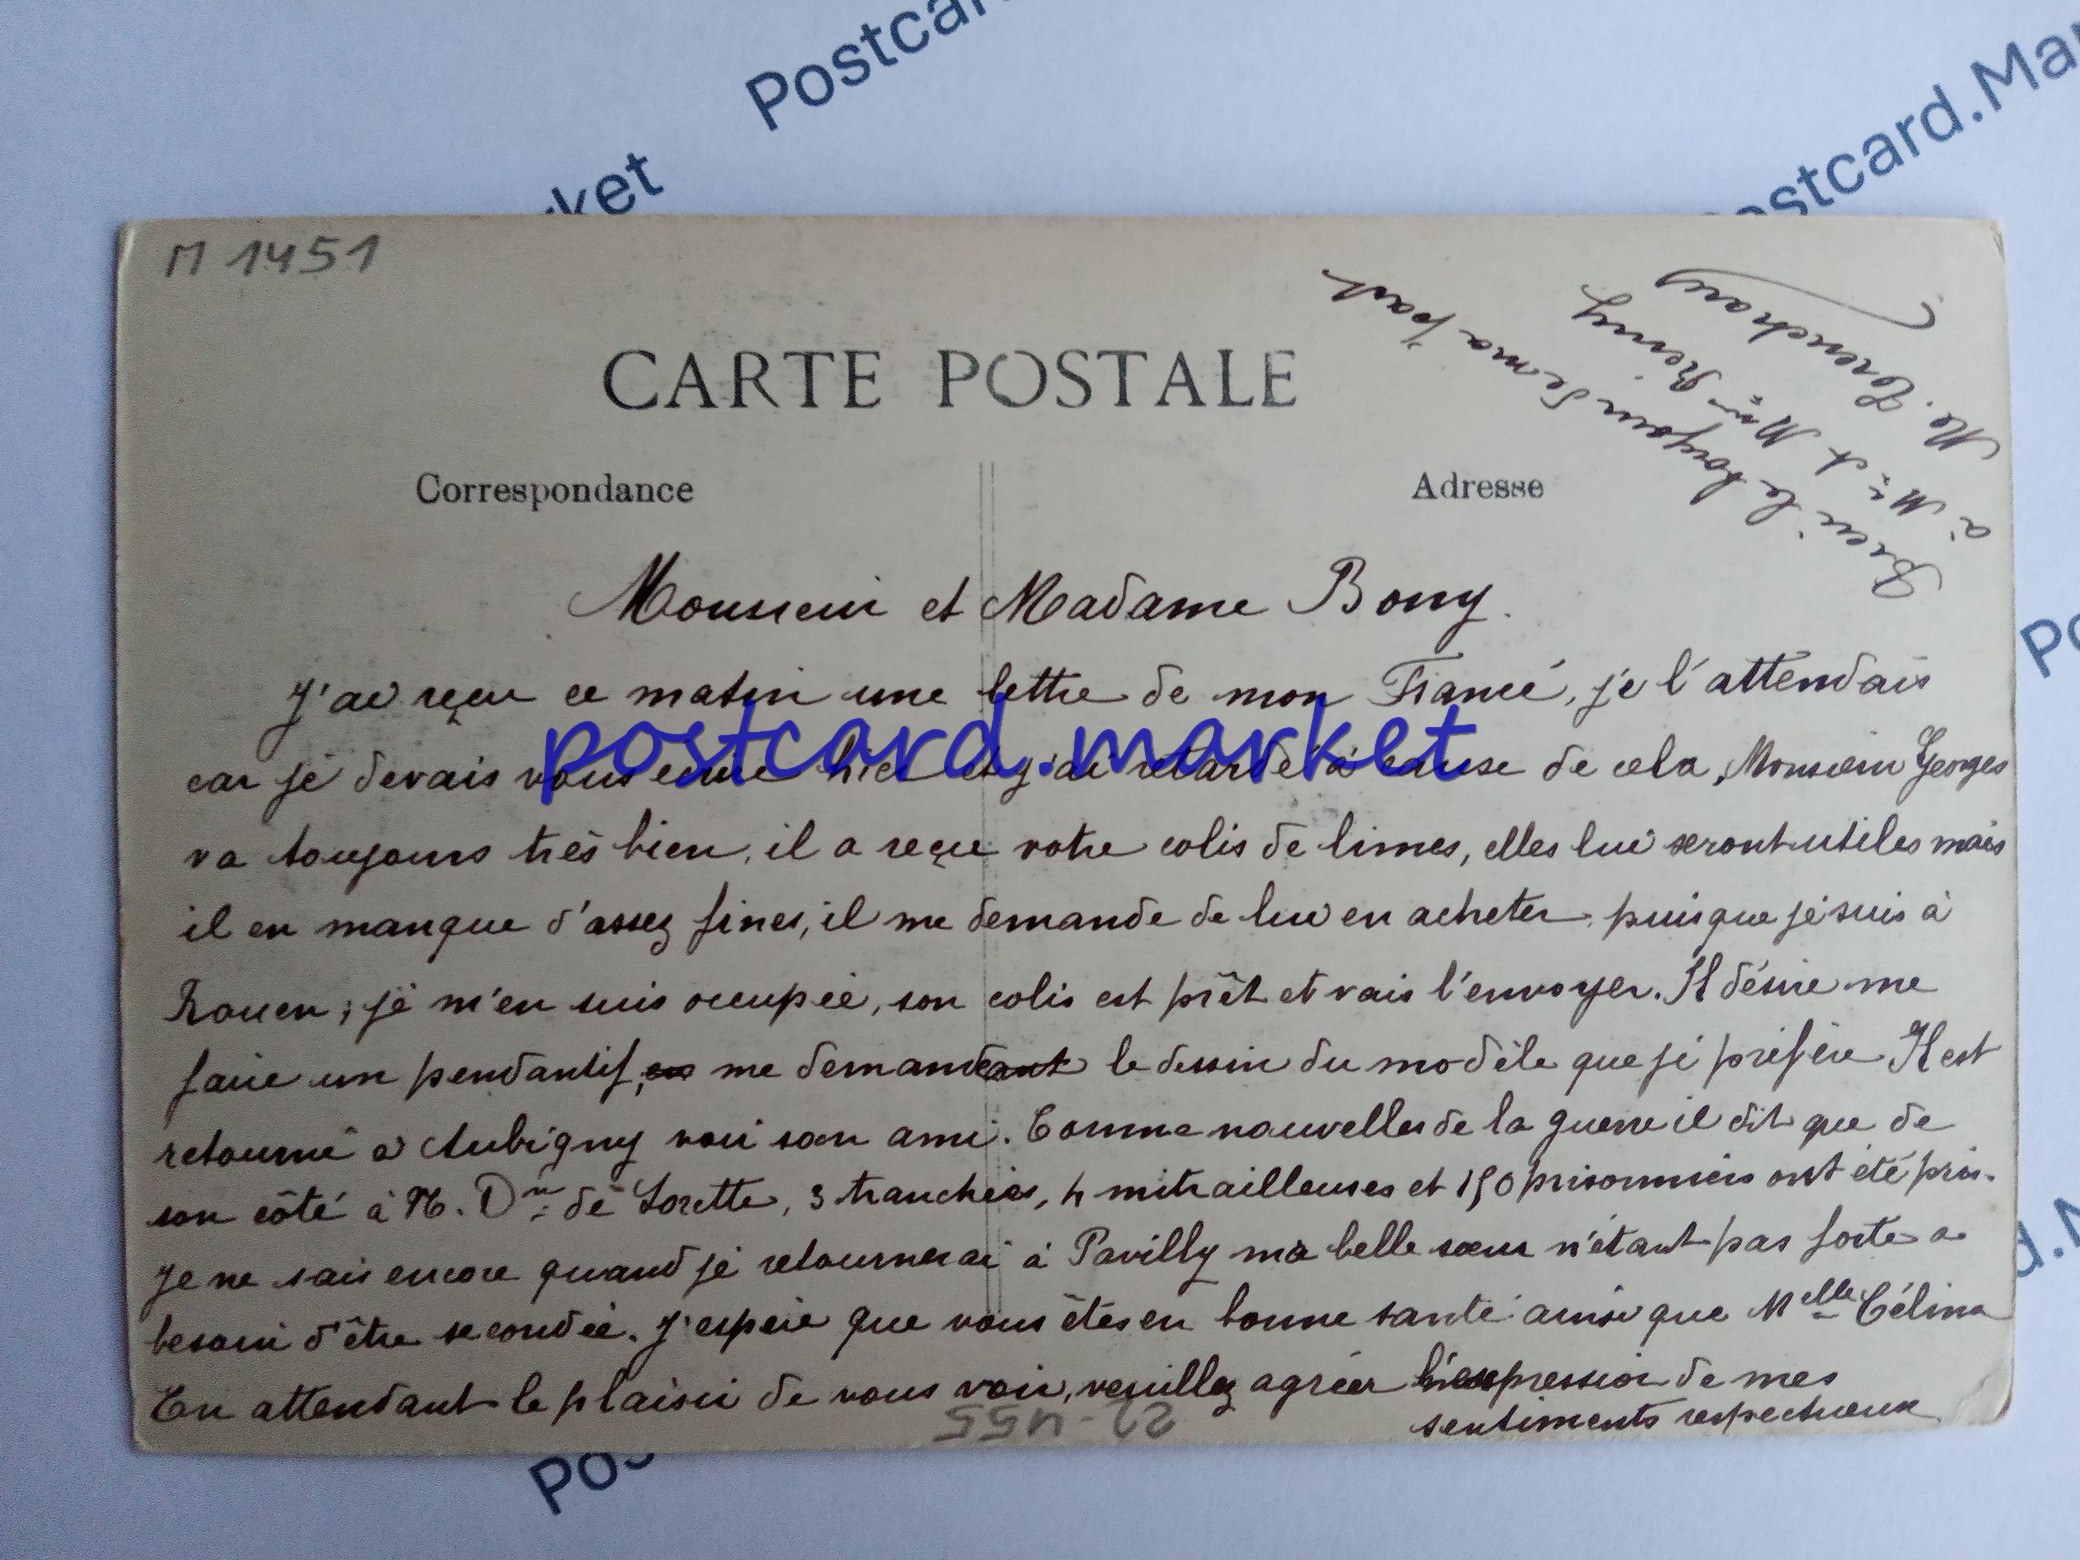 Postcar
stcard.Mar
rket
M 1451
CARTE POSTALE
Correspondance
Adresse
Monsieur et Madame Bony.
J'ai reçu ce matin une lettre de mon Fiancé, je l'attendais
car je devais vous écrire hier et j'ai retardé à cause de cela, Monsieur Georges
va toujours très bien, il a reçu votre colis de limes, elles lui seront utiles mais
il en manque d'assez fines, il me demande de lui en acheter puisque je suis à
Rouen ; je m'en suis occupée, son colis est prêt et vais l'envoyer. Il désire me
faire un pendantif, en me demandant le dessin du modèle que je préfère Il est
retourné à Aubigny voir son ami. Comme nouvelles de la guerre il dit que de
son côté à N. Dme de Lorette, 3 tranchées, 4 mitrailleuses et 150 prisonniers ont été pris.
Je ne sais encore quand je retournerai à Pavilly ma belle sœur n'étant pas forte a
besoin d'être secondée. J'espère que vous êtes en bonne santé ainsi que Melle Célina
En attendant le plaisir de vous voir, veuillez agréer l'expression de mes
sentiments respectueux
le bonjour de ma part
à Mr et Mme Rémy
postcard.market
22-455
Pos
Po
d.M